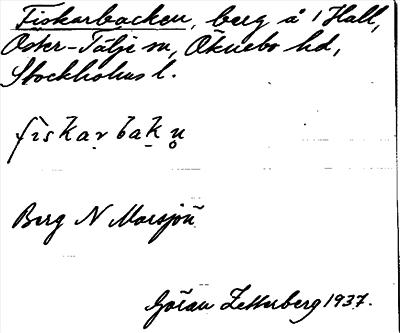 Fiskarbacken, berg å 1 Hall,
Öster-Tälje sn, Öknebo hd,
Stockholms l.
fiskarbakn̥
Berg N Morsjön
Göran Zetterberg 1937.